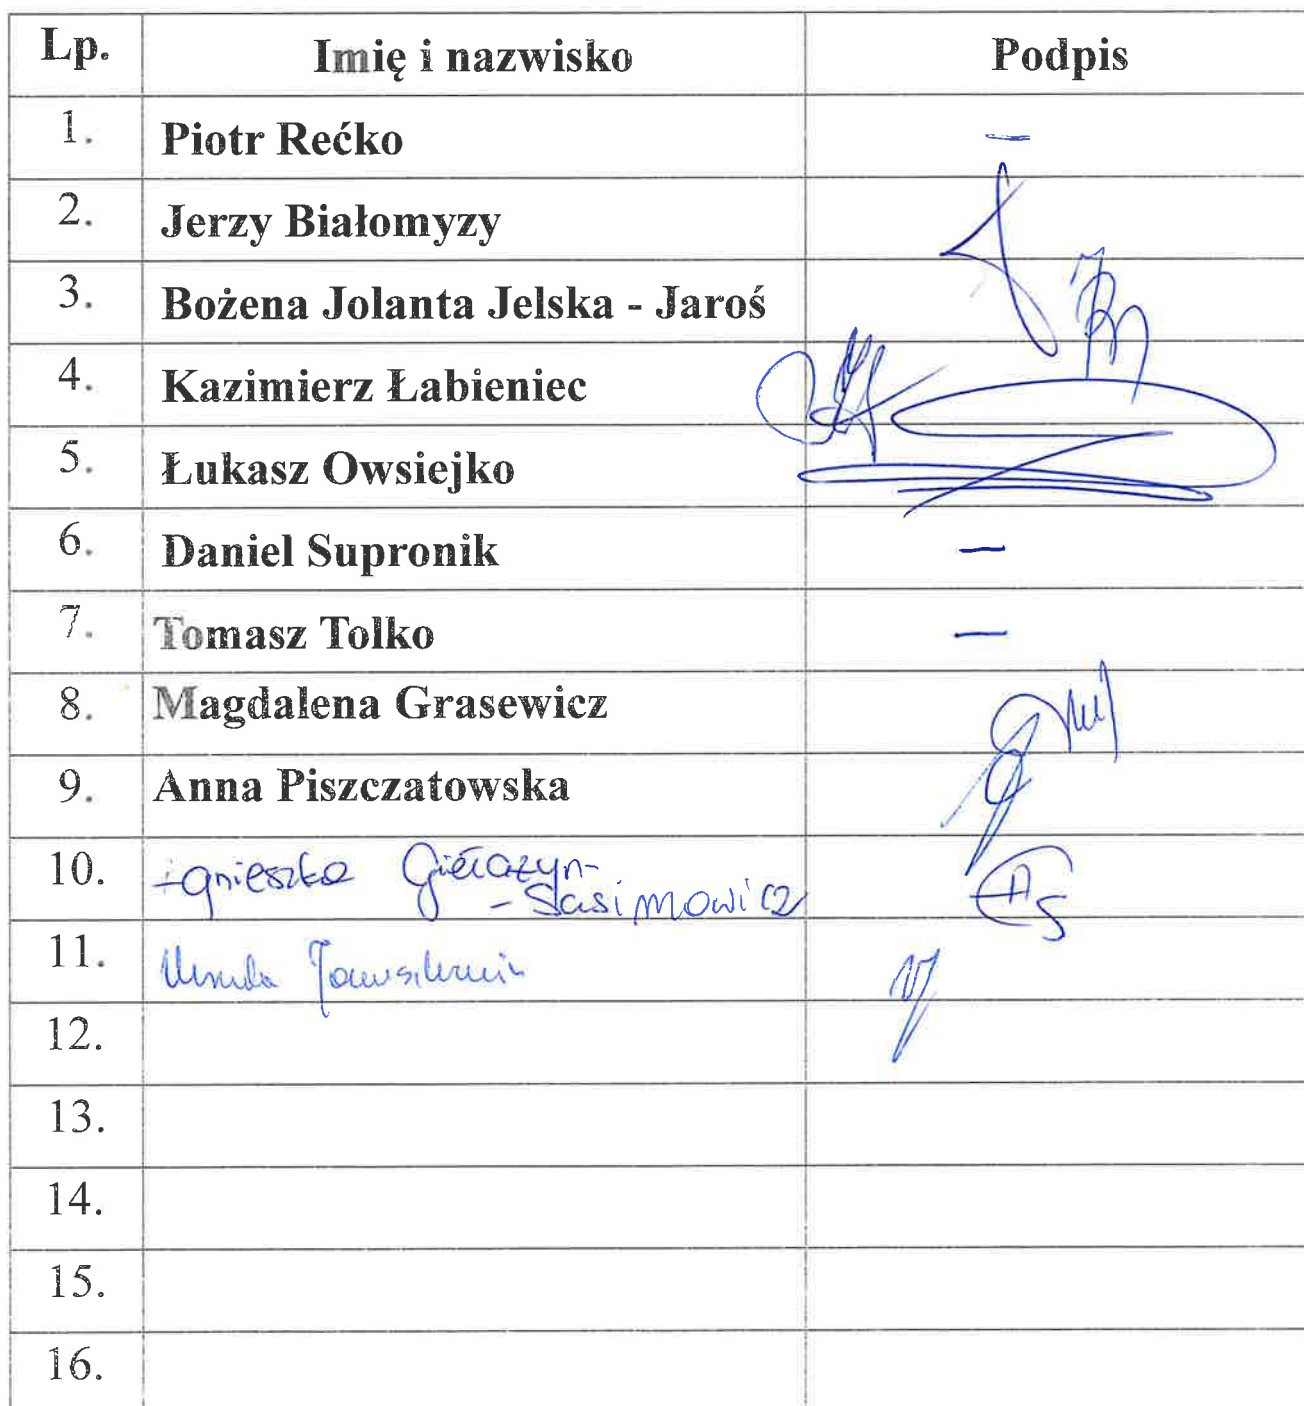 Lp. Imię i nazwisko Podpis
1. Piotr Rećko –
2. Jerzy Białomyzy
3. Bożena Jolanta Jelska - Jaroś
4. Kazimierz Łabieniec
5. Łukasz Owsiejko
6. Daniel Supronik –
7. Tomasz Tolko –
8. Magdalena Grasewicz
9. Anna Piszczatowska
10. Agnieszka
- Sasimowicz
11.
12.
13.
14.
15.
16.